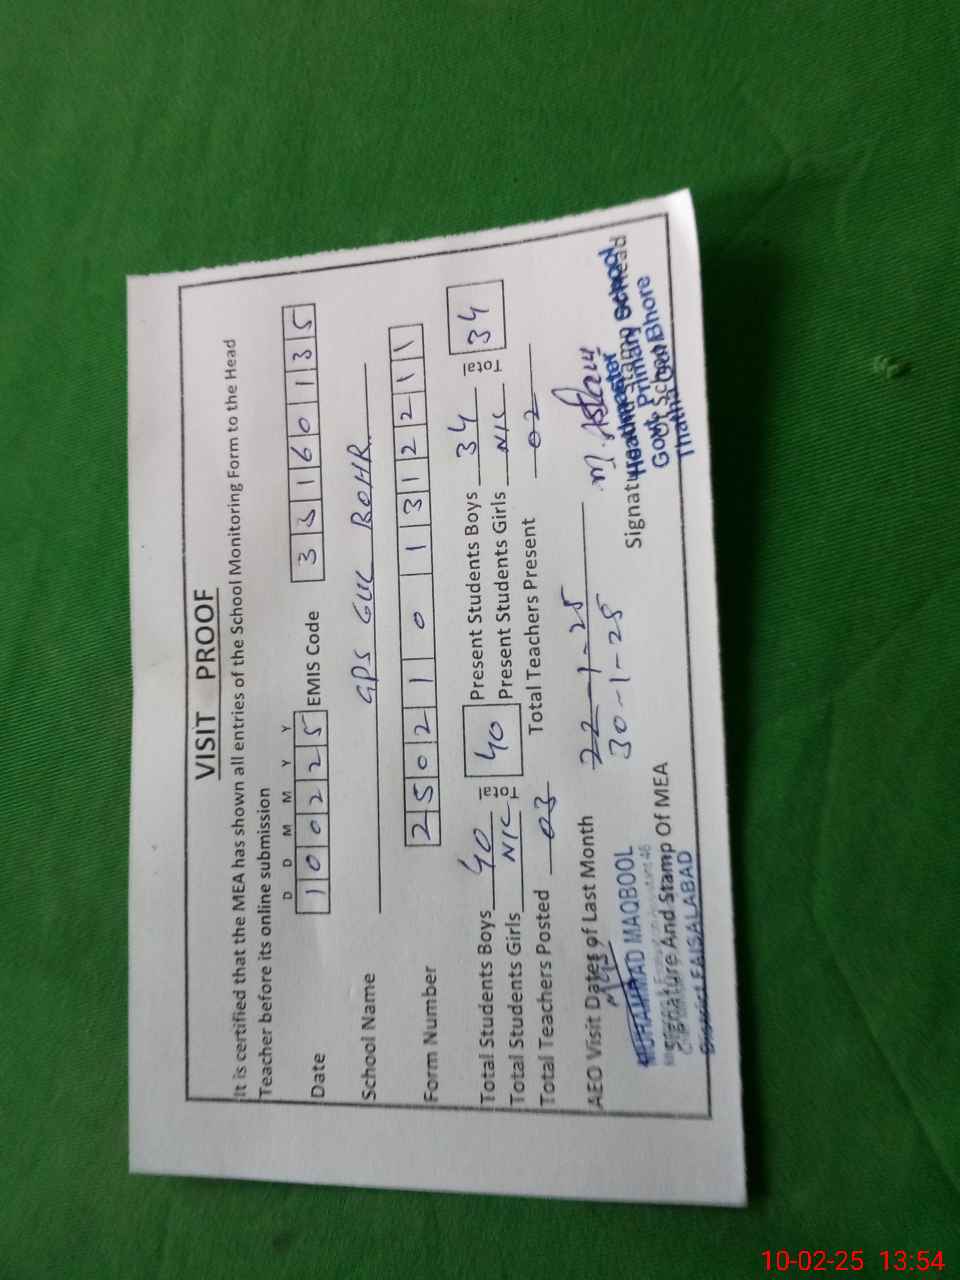 VISIT PROOF
It is certified that the MEA has shown all entries of the School Monitoring Form to the Head
Teacher before its online submission
D D M M Y Y
Date 1 0 0 2 2 5 EMIS Code 3 3 1 6 0 1 3 5
School Name GPS GUL BOHR
Form Number 2 5 0 2 1 0 1 3 1 2 2 1 1
Total Students Boys 40 Total 40 Present Students Boys 34 Total 34
Total Students Girls NIL Present Students Girls NIL
Total Teachers Posted 03 Total Teachers Present 02
AEO Visit Dates of Last Month 22-1-25
30-1-25
M. Aslam
MUHAMMAD MAQBOOL
Signature And Stamp Of MEA
District FAISALABAD
Signature And Stamp Of Head
Headmaster
Govt. Primary School
Of School
10-02-25 13:54